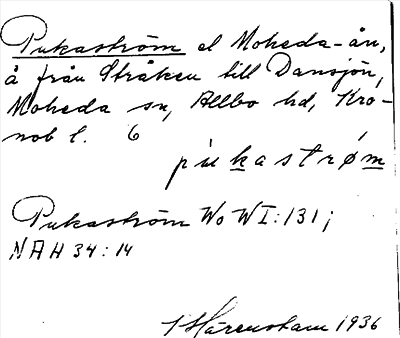 Pukaström el Moheda-ån,
å från Stråken till Dansjön,
Moheda sn, Allbo hd, Kro-
nob l. 6
pukastrøm
Pukaström Wo W I:131;
NAH 34:14
1936